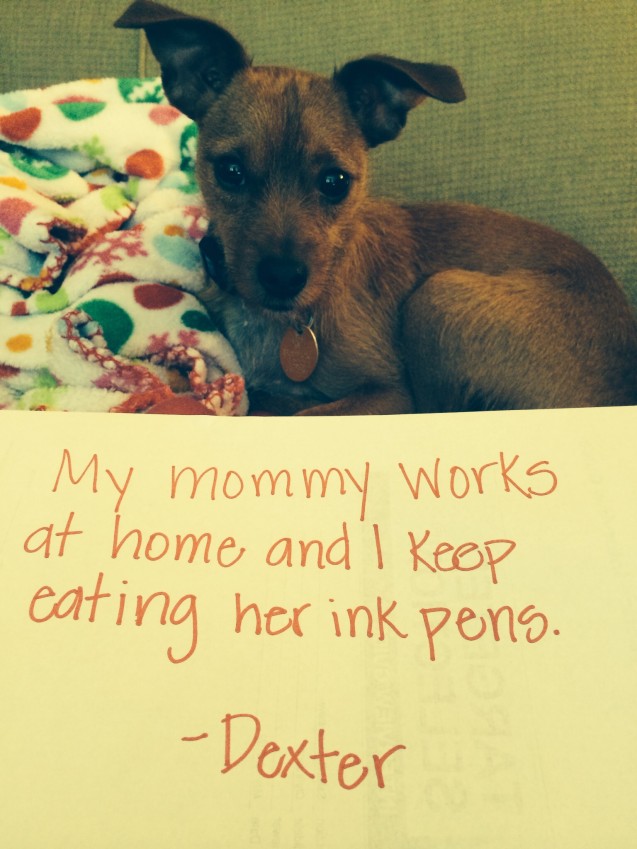 My mommy works
at home and I keep
eating her ink pens.
-Dexter